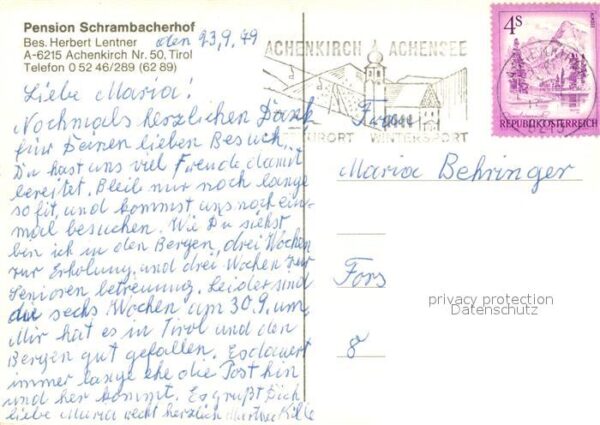 Pension Schrambacherhof
Bes. Herbert Lentner
A-6215 Achenkirch Nr. 50, Tirol
Telefon 0 52 46/289 (62 89)
den 23.9.79
Liebe Maria!
Nochmals herzlichen Dank
für Deinen lieben Besuch.
Du hast uns viel Freude damit
bereitet. Bleib nur noch lange
so fit, und kommst uns noch ein-
mal besuchen. Wie Du siehst
bin ich in den Bergen, drei Wochen
zur Erholung, und drei Wochen zur
Senioren betreuung. Leider sind
die sechs Wochen am 30.9. um.
Mir hat es in Tirol und den
Bergen gut gefallen. Es dauert
immer lange ehe die Post hin
und her kommt. Es grüßt Dich
liebe Maria recht herzlich
ACHENKIRCH ACHENSEE
KURORT WINTERSPORT
4S
REPUBLIK ÖSTERREICH
Frau
Maria Behringer
Fors
8
privacy protection
Datenschutz